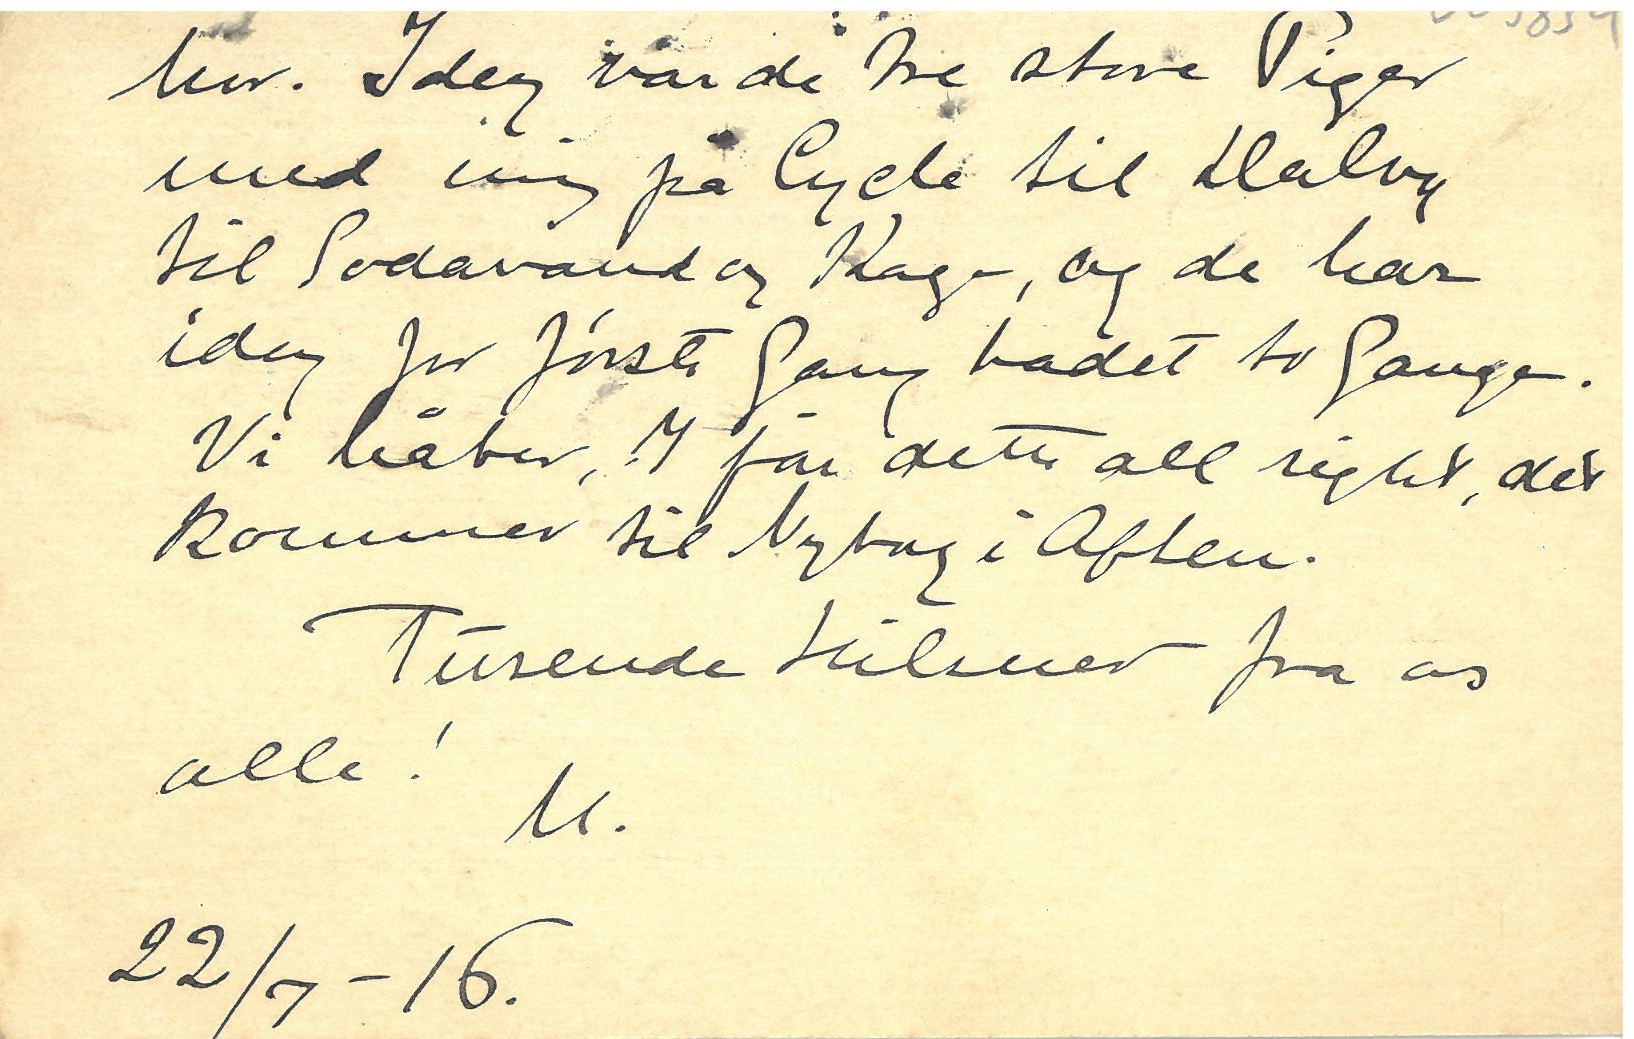 her. Idag var de tre store Piger
med mig på Cycle til Dalby
til Sodavand og Kage, og de har
idag for første Gang badet to Gange.
Vi håber, I får dette all right, det
kommer til Nyborg i Aften.
Tusende Hilsner fra os
alle!
M.
22/7-16.